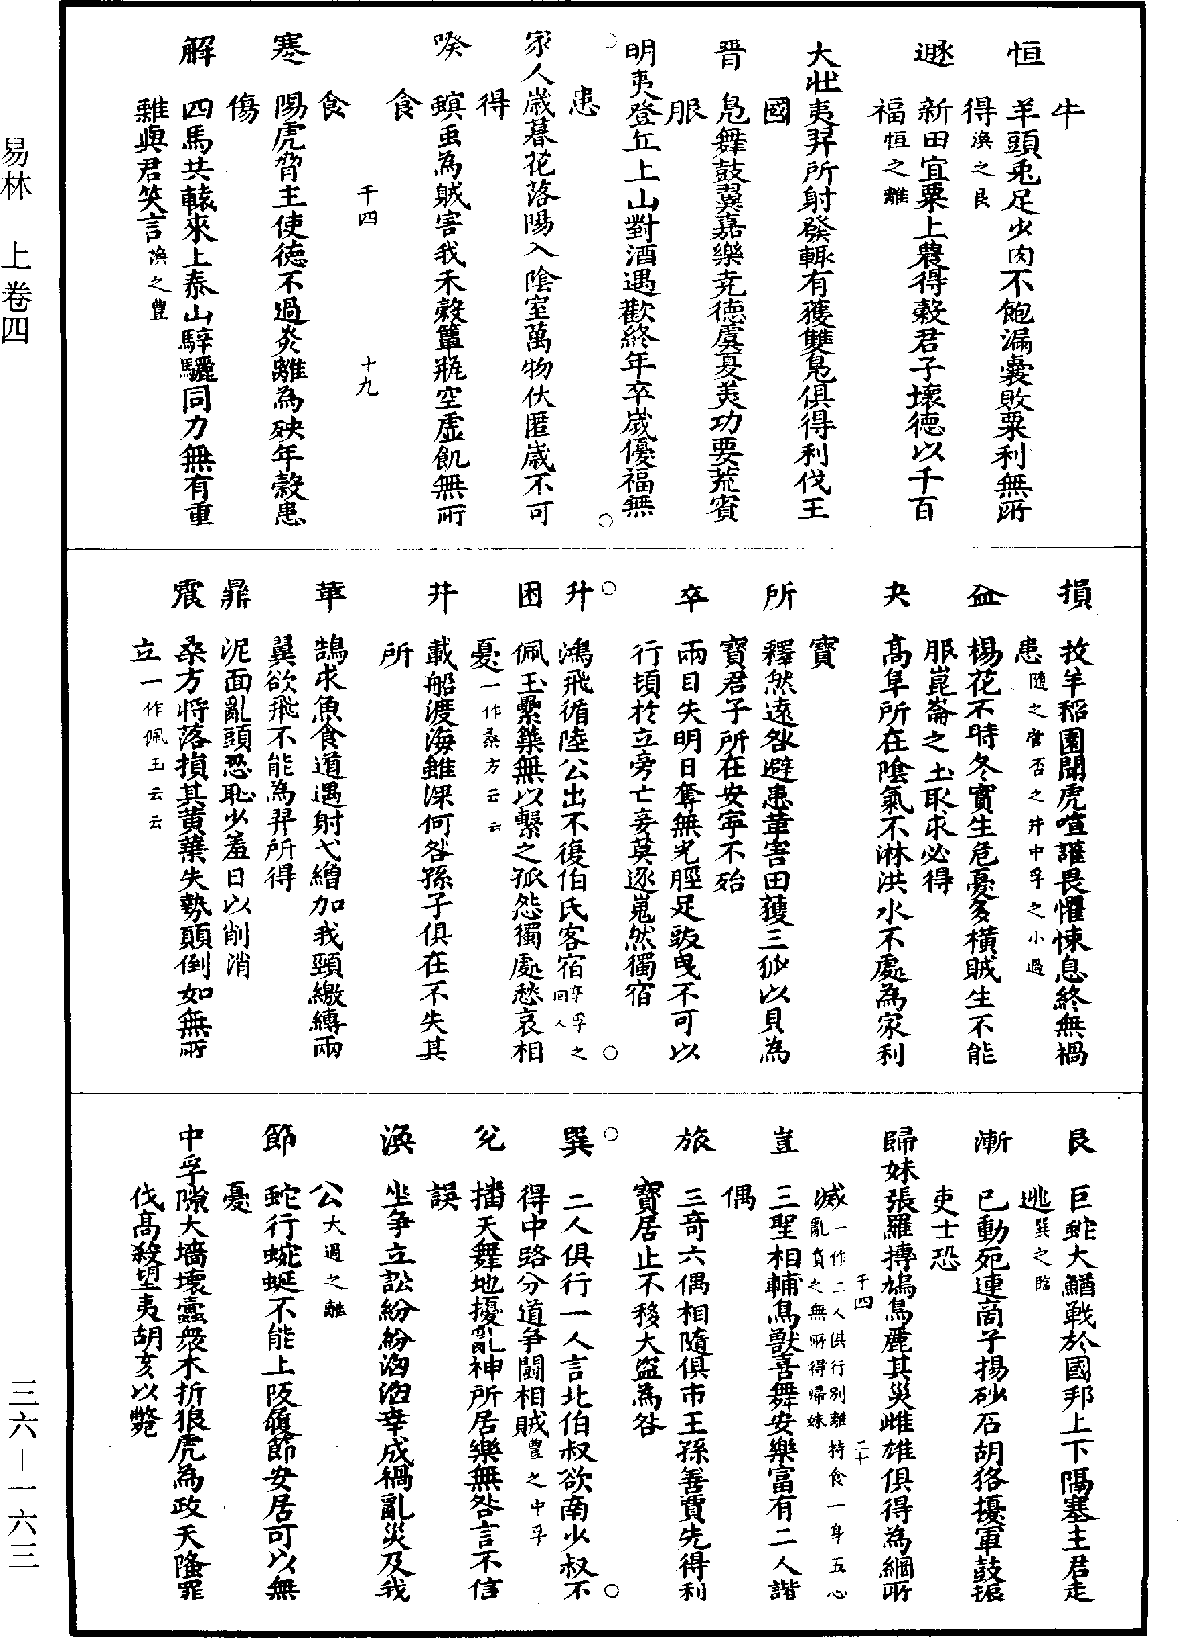 牛
恒　羊頭兎足少肉不飽漏囊敗粟利無所
得渙之艮
遯　新田宜粟上農得穀君子壞德以千百
福恒之離
大壯夷羿所射發輙有獲雙鳧俱得利伐王
國
晉　鳧舞鼓翼嘉樂尭德虞夏美功要荒賓
服
明夷登丘上山對酒遇歡終年卒歲優福無
患
家人歲暮花落陽入陰室萬物伏匿歲不可
得
睽　螟䖝為賊害我禾穀簞瓶空虛飢無所
食
千四　十九
食
蹇　陽虎脅主使德不過炎離為殃年穀患
傷
解　四馬共轅來上泰山騂驪同力無有重
難與君笑言渙之豊
損　放羊稻園聞虎喧讙畏懼悚息終無禍
患隨之萑否之井中孚之小過
益　楊花不時冬實生危憂多橫賊生不能
服崑崙之土取求必得
夬　高阜所在陰氣不淋洪水不處為家利
寶
所　釋然遠咎避患革害田獲三狐以貝為
寶君子所在安寧不殆
卒　兩目失明日奪無光脛足跛曳不可以
行頃於立旁亡妾莫逐嵬然獨宿
升　鴻飛循陸公出不復伯氏客宿中孚之同人
困　佩玉纍蘂無以繫之孤怨獨處愁哀相
憂一作桑方云云
井　載船渡海雖深何咎孫子俱在不失其
所
革　鵠求魚食道遇射弋繒加我頸繳縛兩
翼欲飛不能為羿所得
鼎　泥面亂頭恐恥少羞日以削消
震　桑方將落損其黄葉失勢顛倒如無所
立一作佩玉云云
艮　巨蛇大鰌戰於國邦上下隔塞主君走
逃巽之臨
漸　已動死連商子揚砂石胡狢擾軍鼓振
吏士恐
歸妹張羅摶鳩鳥麗其災雌雄俱得為網所
滅一作二人俱行別離特食一身五心亂負之無所得歸妹
千四　二十
豈　三聖相輔鳥獸喜舞安樂富有二人諧
偶
旅　三奇六偶相隨俱市王孫善賈先得利
寶居止不移大盜為咎
巽　二人俱行一人言北伯叔欲南少叔不
得中路分道爭鬭相賊豊之中孚
兊　播天舞地擾亂神所居樂無咎言不信
誤
渙　坐爭立訟紛紛洶洶幸成禍亂災及我
公大過之離
節　蛇行蜿蜒不能上阪履節安居可以無
憂
中孚隙大墻壞蠹衆木折狼虎為政天隆罪
伐高殺望夷胡亥以斃
易林　上卷四
三六—一六三